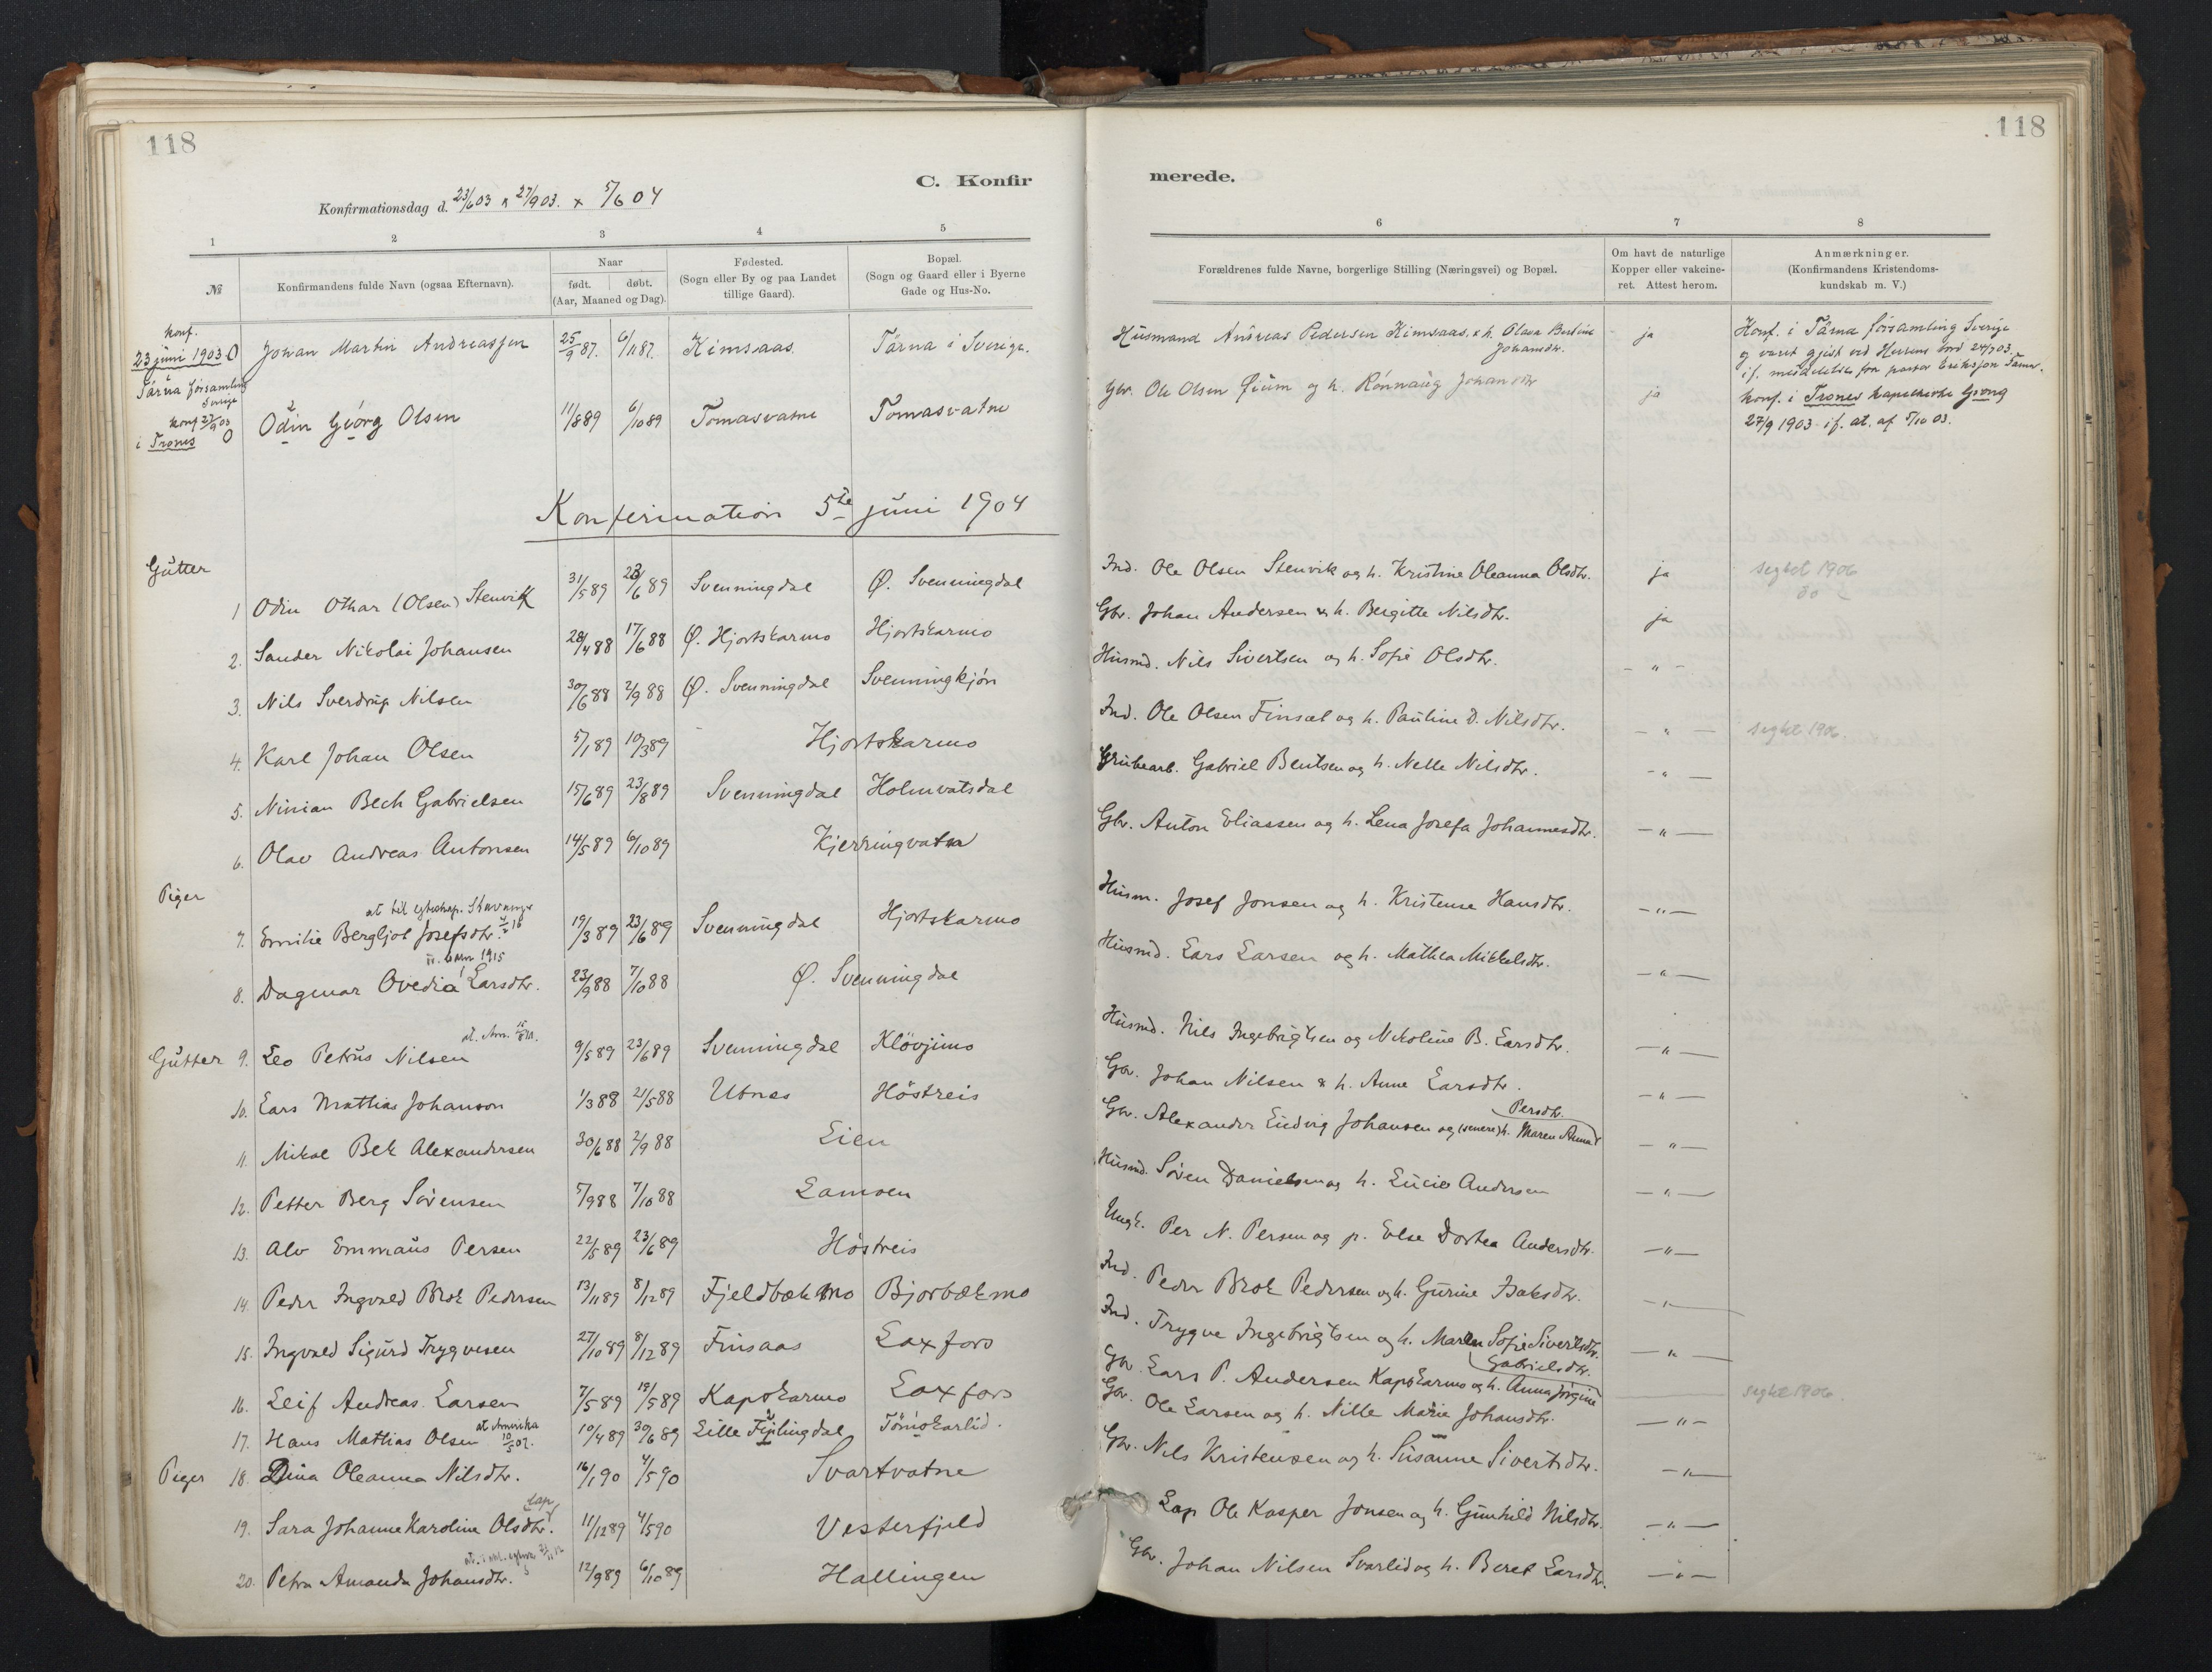 118
C. Konfir
Konfirmationsdag d. 23/6 03 & 27/9 03. × 5/6 04
1 2 3 4 5
№
Konfirmandens fulde Navn (ogsaa Efternavn).
Naar
født. døbt.
(Aar, Maaned og Dag).
Fødested.
(Sogn eller By og paa Landet
tillige Gaard).
Bopæl.
(Sogn og Gaard eller i Byerne
Gade og Hus-No.
Konf.
23 juni 1903 O Johan Martin Andreassen 25/9 87. 6/11 87. Kimsaas Tärna i Sverige.
Tärna församling
Sverige
Konf 27/9 03
i Trones O Odin Georg Olsen 11/8 89 6/10 89 Tomasvatne Tomasvatne
Konfirmation 5te juni 1904
Gutter
1 Odin Othar (Olsen) Stenvik 31/5 89 23/6 89 Svenningdal Ø. Svenningdal
2. Sander Nikolai Johansen 28/4 88 17/6 88 Ø. Hjortskarmo Hjortskarmo
3. Nils Sverdrup Nilsen 30/6 88 2/9 88 Ø. Svenningdal Svenningkjøn
4. Karl Johan Olsen 5/1 89 10/3 89 Hjortskarmo
5. Ninian Bech Gabrielsen 15/6 89 23/8 89 Svenningdal Holmvatsdal
6. Olav Andreas Antonsen 14/5 89 6/10 89 Kjerringvatn
Piger
7. Emilie Bergljot Josefsdtr. 19/3 89 23/6 89 Svenningdal Hjortskarmo
8. Dagmar Ovedia Larsdtr. 23/9 88 7/10 88 Ø. Svenningdal
Gutter 9. Leo Petrus Nilsen 9/5 89 23/6 89 Svenningdal Kløvjimo
10. Lars Mathias Johanson 1/3 88 21/5 88 Utnes Höstreis
11. Mikal Bek Alexandersen 30/6 88 2/9 88 Lien
12. Petter Berg Sörensen 5/9 88 7/10 88 Lamoen
13. Alv Emmaus Persen 22/5 89 23/6 89 Höstreis
14. Peder Ingvald Brok Pedersen 13/11 89 8/12 89 Fjeldbækmo Bjorbækmo
15. Ingvald Sigurd Trygvesen 27/10 89 8/12 89 Finsaas Laxfors
16. Leif Andreas Larsen 7/5 89 19/5 89 Kapskarmo Laxfors
at Amerika
17. Hans Mathias Olsen 10/4 89 30/6 89 Lille Fiplingdal Tömskarlid.
Piger 18. Dina Oleanna Nilsdtr. 16/1 90 4/5 90 Svartvatne
Lap
19. Sara Johanne Karoline Olsdtr. 11/12 89 4/5 90 Vesterfjeld
20. Petra Amanda Johansdtr. 12/9 89 6/10 89 Hallingen
118
merede.
6 7 8
Forældrenes fulde Navne, borgerlige Stilling (Næringsvei) og Bopæl.
Om havt de naturlige
Kopper eller vakcine-
ret. Attest herom.
Anmærkninger.
(Konfirmandens Kristendoms-
kundskab m. V.)
Husmand Andreas Pedersen Kimsaas & h. Olava Bertine
Johansdtr. ja
Konf. i Tärna församling Sverige
og været gjest ved Herrens bord 24/7 03
if. meddelelse fra pastor Eriksson Tärna.
Gbr. Ole Olsen Øium og h. Rønnaug Johansdtr ja
Konf. i Trones kapelkirke Grong
27/9 1903 if. at. af 5/10 03.
Ind. Ole Olsen Stenvik og h. Kristine Oleanna Olsdtr. ja
Gbr. Johan Andersen & h. Beigitte Nilsdtr. ja
Husmd. Nils Sivertsen og h. Sofie Olsdtr. - " -
Ind. Ole Olsen Finsæt og h. Pauline D. Nilsdtr. - " -
Grubearb. Gabriel Bentsen og h. Nelle Nilsdtr. - " -
Gbr. Anton Eliassen og h. Lena Josefa Johannesdtr. - " -
Husm. Josef Jonsen og h. Kristense Hansdtr. - " -
Husmd. Lars Larsen og h. Mathea Mikkelsdtr. - " -
Husmd. Nils Ingebrigtsen og Nikoline B. Larsdtr. - " -
Gbr. Johan Nilsen & h. Anne Larsdtr. - " -
Persdtr.
Gbr. Alexander Ludvig Johansen og (senere) h. Maren Anna - " -
Husmd. Sören Danielsen og h. Lucie Andersen - " -
Ungk. Per N. Persen og p. Else Dortea Andersdtr. - " -
Ind. Peder Brok Pedersen og h. Gurine Isaksdtr. - " -
Ind. Trygve Ingebrigtsen og h. Maren Sofie Sivertsdtr. - " -
Gabrielsdtr.
Gbr. Lars P. Andersen Kapskarmo og h. Anna Jörgine
Gbr. Ole Larsen og h. Nille Marie Johansdtr. - " -
Gbr. Nils Kristensen og h. Susanne Sivertsdtr. - " -
Lap Ole Kasper Jonsen og h. Gunhild Nilsdtr. - " -
Gbr. Johan Nilsen Svarlid og h. Beret Larsdtr. - " -